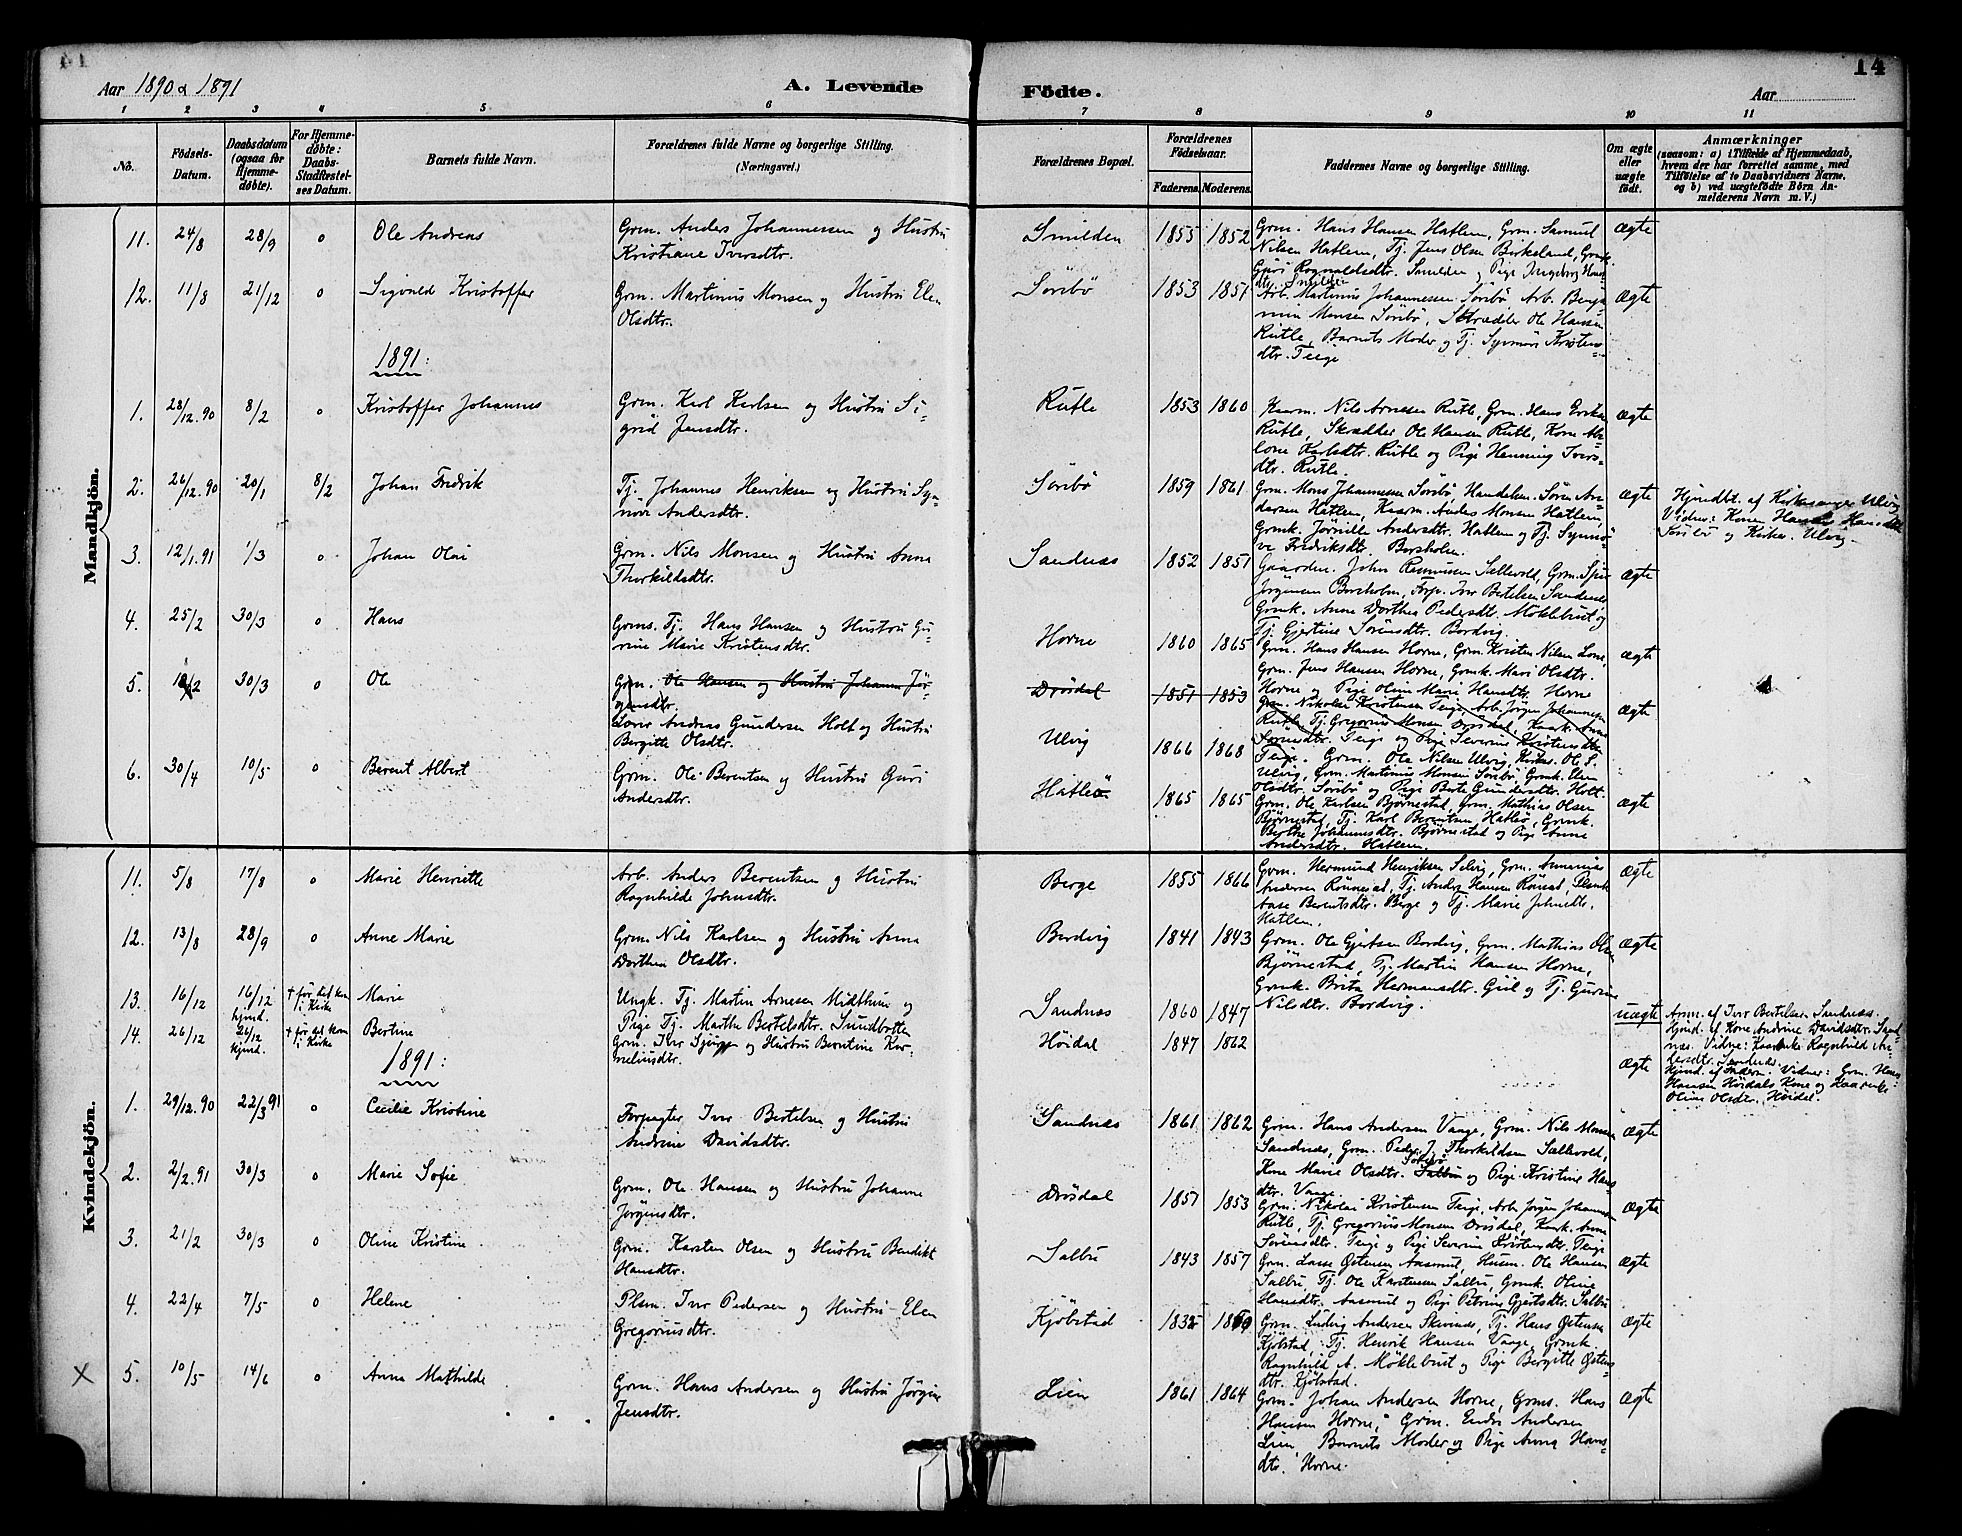 14
Aar 1890 & 1891
A. Levende
Födte.
Aar
1 2 3 4 5 6 7 8 9 10 11
No.
Födsels-
Datum.
Daabsdatum
(ogsaa för
Hjemme-
döbte).
For Hjemme-
döbte:
Daabs-
Stadfæstel-
ses Datum.
Barnets fulde Navn.
Forældrenes fulde Navne og borgerlige Stilling.
(Næringsvei.)
Forældrenes Bopæl.
Forældrenes
Födselsaar.
Faderens. Moderens.
Faddernes Navne og borgerlige Stilling.
Om ægte
eller
uægte
födt.
Anmærkninger
(saasom: a) i Tilfælde af Hjemmedaab,
hvem der har forrettet samme, med
Tilföielse af to Daabsvidners Navne,
og b) ved uægtefödte Börn An-
melderens Navn m. V.)
Mandkjön.
11. 24/8 28/9 0 Ole Andreas
Grm. Anders Johannessen og Hustru
Kristiane Iversdtr.
Smilden 1855 1852
Grm. Hans Hansen Hatlem, Grm. Samuel
Nilsen Hatlem, Tj. Jens Olsen Birkeland, Grmk.
Guri Rognaldsdtr. Smilden og Pige Ingeborg Hans
dtr. Smilden
ægte
12. 11/8 21/12 0 Sigvald Kristoffer
Grm. Martinus Monsen og Hustru Elen
Olsdtr.
Söribö 1853 1851
Arb. Martinus Johannessen Söribö, Arb. Benja-
min Monsen Söribö, Skrædder Ole Hansen
Rutle, Barnets Moder og Tj. Synnöri Kristens-
dtr. Teige
ægte
1891:
1. 28/12.90 8/2 0 Kristoffer Johannes
Grm. Karl Karlsen og Hustru Si-
grid Jensdtr.
Rutle 1853 1860
Kaarm. Nils Arnesen Rutle, Grm. Hans Eriksen
Rutle, Skrædder Ole Hansen Rutle, Kone
Karlsdtr. Rutle og Pige Henning Ivers-
dtr. Rutle.
ægte
2. 26/12.90 20/1 8/2 Johan Fredrik
Tj. Johannes Henriksen og Hustru Sy-
növe Andersdtr.
Söribö 1859 1861
Grm. Mons Johannessen Söribö, Handelsm. Sören An-
dersen Hatlem, Kaarm. Anders Monsen Hatlem,
Grmk. Andersdtr. Hatlem og Tj. Synnö-
ve Fredriksdtr. Borsholm.
ægte
Hjemdbt. af Kirkesanger Ulvig
Vidner: Kone
Söribö og Kirkes. Ulvig.
3. 12/1.91 1/3 0 Johan Olai
Grm. Nils Monsen og Hustru Anna
Thorkildsdtr.
Sandnæs 1852 1851
Gaardm. John Rasmussen Sællevold, Grm.
Jörgensen Borsholm, Forp. Iver Bertelsen Sandnæs,
Grmk. Anne Dorthea Pedersdtr. Möklebust og
Tj. Gjertine Sörensdtr. Bordvig.
ægte
4. 25/2 30/3 0 Hans
Grms. Tj. Hans Hansen og Hustru Gu-
rine Marie Kristensdtr.
Horne 1860 1865
Grm. Hans Hansen Horne, Grm. Kristen Nilsen Lone,
Grm. Jens Hansen Horne, Grmk. Mari Olsdtr.
Horne og Pige Oline Marie Hansdtr. Horne
ægte
5. 30/3 0 Ole
Grm. Ole Hansen og Hustru Johanne Jör-
gensdtr.
Lærer Andreas Gundersen Holt og Hustru
Bergitte Olsdtr.
Drösdal 1851 1853
Ulvig 1866 1868
Grm. Nikolai Kristensen Teige, Arb. Jörgen Johannessen
Rutle, Tj. Gregorius Monsen Drösdal, Kaark. Anne
Sörensdtr. Teige og Pige Severine Kristensdtr.
Teige. Grm. Ole Nilsen Ulvig, Kirkes. Ole S.
Ulvig, Grm. Martinus Monsen Söribö, Grmk. Elen
Olsdtr. Söribö og Pige Berte Gundersdtr. Holt.
ægte
6. 30/4 10/5 0 Berent Albert
Grm. Ole Berentsen og Hustru Guri
Andersdtr.
Hatleö 1865 1865
Grm. Ole Karlsen Björnestad, Grm. Mathias Olsen
Björnestad, Tj. Karl Berentsen Hatleö, Grmk.
Berthe Johannesdtr. Björnestad og Pige Anne
Andersdtr. Hatlem.
ægte
Kvindekjön.
11. 5/8 17/8 0 Marie Henriette
Arb. Anders Berentsen og Hustru
Ragnhilde Johnsdtr.
Berge 1855 1866
Grm. Hermund Henriksen Selvig, Grm. Annanias
Andersen Rönnesad, Tj. Anders Hansen Rönsad,
Aase Berentsdtr. Berge og Tj. Marie Johnsdtr.
Hatlem.
ægte
12. 13/8 28/9 0 Anne Marie
Grm. Nils Karlsen og Hustru Anna
Dorthea Olsdtr.
Bordvig 1841 1843
Grm. Ole Gjertsen Bordvig, Grm. Mathias Olsen
Björnestad, Tj. Martin Hansen Horne,
Grmk. Brita Hermansdtr. Giil og Tj. Gurine
Nilsdtr. Bordvig.
ægte
13. 16/12 16/12 hjmd. † för det kom i Kirke Marie
Ungk. Tj. Martin Arnesen Midthun og
Pige Tj. Marthe Bertelsdtr. Sundbotten
Sandnæs 1860 1847
uægte
Anm. af Iver Bertelsen Sandnæs.
Hjmd. af Kone Andrine Davidsdtr. Sand-
næs. Vidne: Kaarenke Ragnhild An-
dersdtr. Sandnæs
14. 26/12 26/12 hjmd. † för det kom i Kirke Bertine
Grm. Iver Sjursen og Hustru Berntine Kor-
neliusdtr.
Höidal 1847 1862
ægte
Hjmd. af Vidner: Grm. Hans
Hansen Höidals Kone og Kaarenke
Oline Olsdtr. Höidal.
1891:
1. 29/12.90 22/3 91 0 Cecilie Kristine
Forpagter Iver Bertelsen og Hustru
Andrine Davidsdtr.
Sandnæs 1861 1862
Grm. Hans Andersen Vaage, Grm. Nils Monsen
Sandnæs, Grm. Peder J. Thorkildsen Sællevold,
Kone Marie Olsdtr. Salbu Söribö og Pige Kristine Hans-
dtr. Vaage.
ægte
2. 2/2.91 30/3 0 Marie Sofie
Grm. Ole Hansen og Hustru Johanne
Jörgensdtr.
Drösdal 1851 1853
Grm. Nikolai Kristensen Teige, Arb. Jörgen Johannessen
Rutle, Tj. Gregorius Monsen Drösdal, Kaark. Anne
Sörensdtr. Teige og Pige Severine Kristensdtr. Teige
ægte
3. 21/2 30/3 0 Oline Kristine
Grm. Karsten Olsen og Hustru Bendikt
Hansdtr.
Salbu 1843 1857
Grm. Lasse Östensen Aasmul, Husm. Ole Hansen
Salbu, Tj. Ole Karstensen Salbu, Grmk. Oline
Hansdtr. Aasmul og Pige Petrine Gjertsdtr. Salbu
ægte
4. 22/4 7/5 0 Helene
Plsm. Iver Pedersen og Hustru Elen
Gregoriusdtr.
Kjöbstad
Grm. Ludvig Andersen Tj. Hans Östensen
Kjöbstad, Tj. Henrik Hansen Vaage, Grmk.
Ragnhild A. Möklebust og Pige Bergitte Östens-
dtr. Kjöbstad.
ægte
× 5. 10/5 14/6 0 Anna Mathilde
Grm. Hans Andersen og Hustru Jörgine
Jensdtr.
Lien 1861 1864
Grm. Johan Andersen Horne, Grms. Hans
Hansen Horne, Grm. Endre Andersen
Lien, Barnets Moder og Pige Anna Hans-
dtr. Horne.
ægte